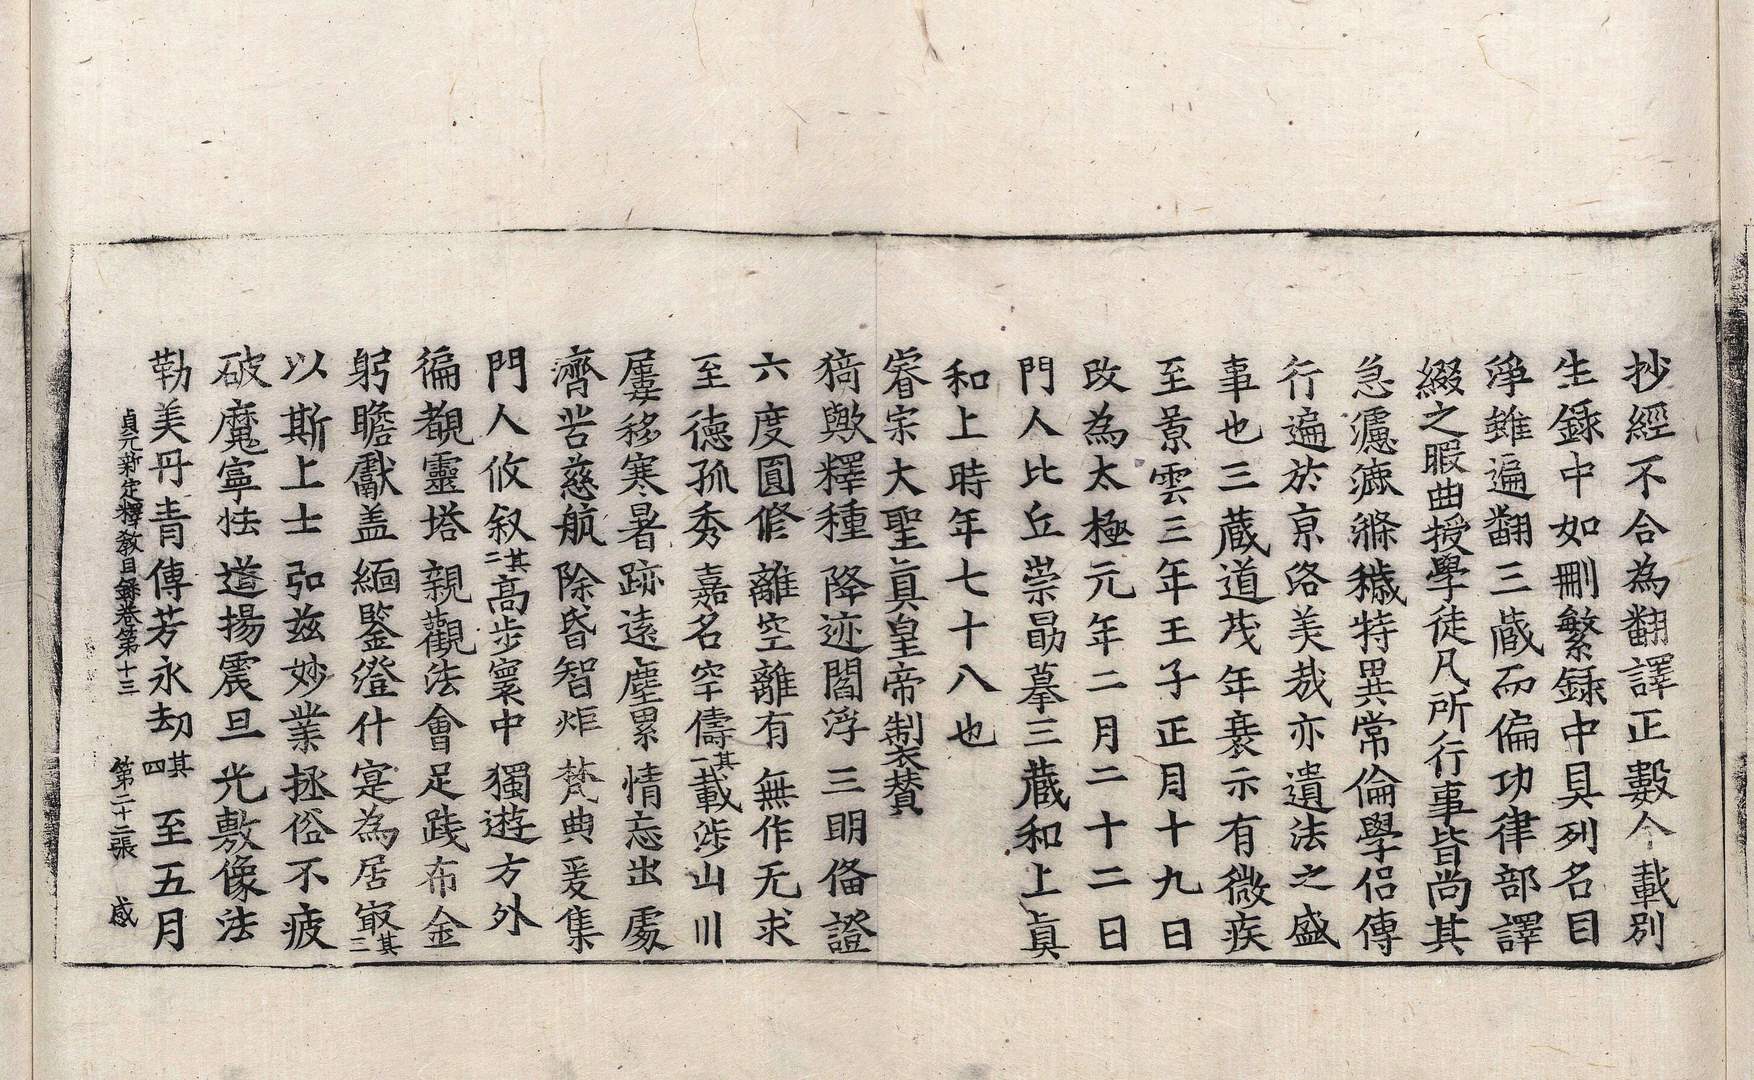 抄經不合為翻譯正數今載別
生録中如刪繁録中具列名目
淨雖遍翻三蔵而偏功律部譯
綴之暇曲授學徒凡所行事皆尚其
急濾漉滌穢特異常倫學侶傳
行遍於京洛美哉亦遺法之盛
事也三蔵道茂年衰示有微疾
至景雲三年壬子正月十九日
改為太極元年二月二十二日
門人比丘崇勗摹三蔵和上真
和上時年七十八也
睿宗大聖真皇帝制衣賛
猗歟釋種降迹閻浮三明俻證
六度圓修離空離有無作无求
至德孤秀嘉名罕儔其一載涉山川
屢移寒暑跡遠塵累情忘出處
濟苦慈航除昏智炬梵典爰集
門人攸叙其二高步寰中獨遊方外
徧覩靈塔親觀法會足踐布金
躬瞻獻盖緬鑒澄什寔為居㝡其三
以斯上士弘玆妙業拯俗不疲
破魔寧怯遵揚震旦光敷像法
勒美丹青傳芳永劫其四至五月
貞元新定釋教目録卷第十三 第二十二張 感